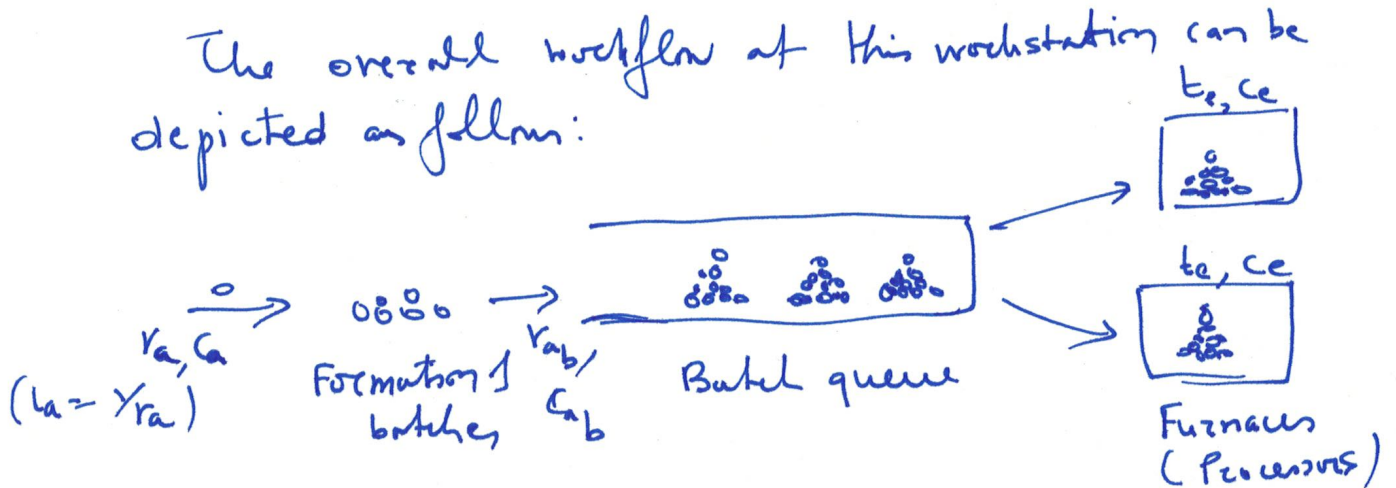 The overall workflow at this workstation can be
depicted as follows:
te, ce
te, ce
ra, ca
(ta = 1/ra)
Formation of
batches
rab,
cab
Batch queue
Furnaces
(Processors)